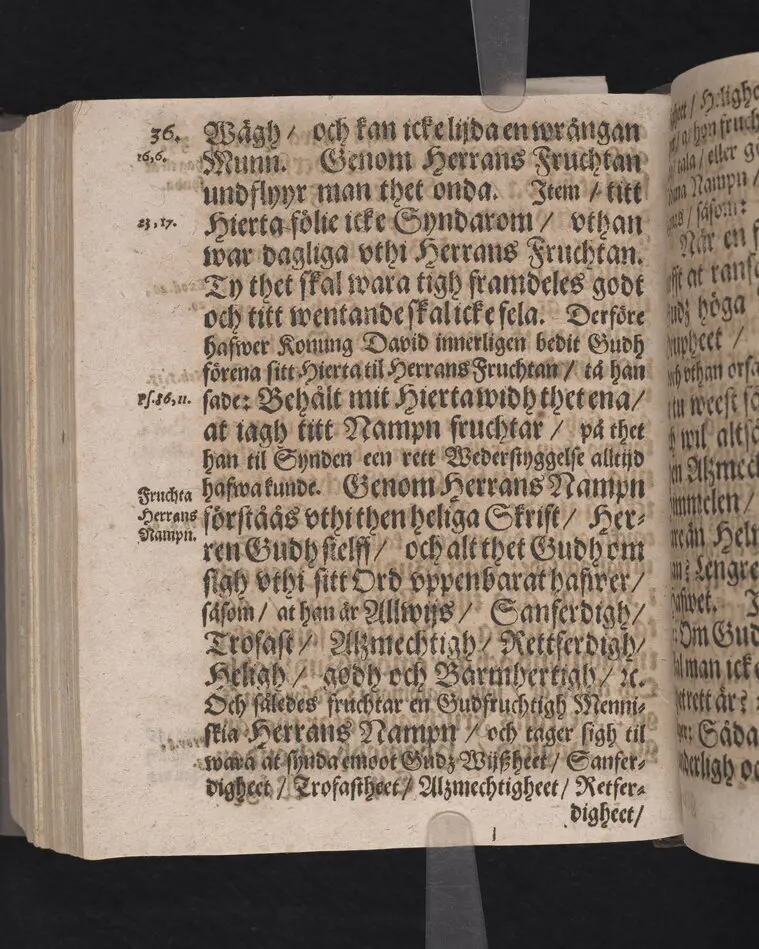 36. Wägh / och kan icke lijda en wrångan
16,6. Munn. Genom Herrans Fruchtan
undflyyr man thet onda. Item / titt
23,17. Hierta fölie icke Syndarom / vthan
war dagliga vthi Herrans Fruchtan.
Ty thet skal wara tigh framdeles godt
och titt wentande skal icke fela. Derföre
hafwer Konung David innerligen bedit Gudh
förena sitt Hierta til Herrans Fruchtan / tå han
Ps.86,11. sade: Behålt mitt Hierta widh thet ena /
at iagh titt Nampn fruchtar / på thet
han til Synden een rett Wederstyggelse alltijd
hafwa kunde. Genom Herrans Nampn
Fruchta
Herrans
Nampn.
förståås vthi then heliga Skrift / Her-
ren Gudh sielff / och alt thet Gudh om
sigh vthi sitt Ord vppenbarat hafwer /
såsom / at han är Allwijs / Sanferdigh /
Trofast / Alzmechtigh / Rettferdigh /
Heligh / godh och Barmhertigh / ꝛc.
Och således fruchtar en Gudfruchtigh Menni-
skia Herrans Nampn / och tager sigh til
wara at synda emoot Gudz Wijßheet / Sanfer-
digheet / Trofastheet / Alzmechtigheet / Retfer-
digheet /